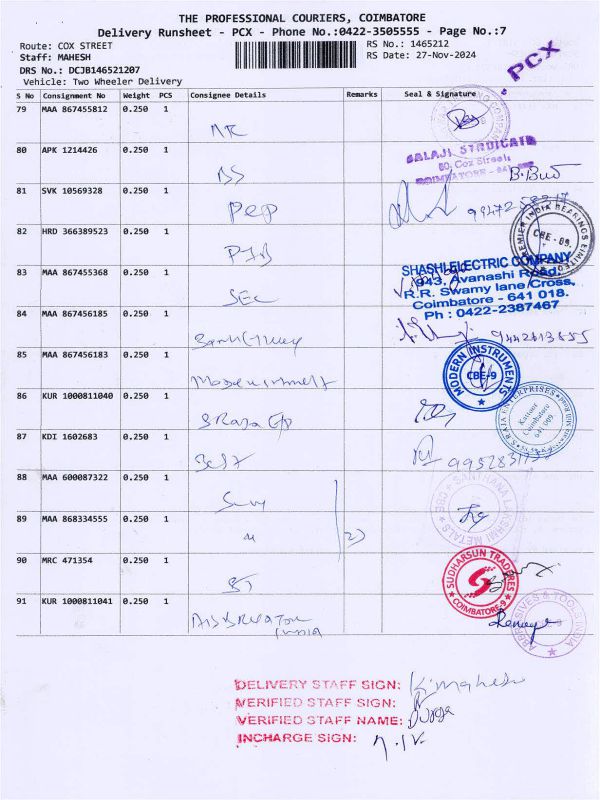 THE PROFESSIONAL COURIERS, COIMBATORE
Delivery Runsheet - PCX - Phone No.:0422-3505555 - Page No.:7
Route: COX STREET
RS No.: 1465212
Staff: MAHESH
RS Date: 27-Nov-2024
DRS No.: DCJB146521207
Vehicle: Two Wheeler Delivery
PCX
S No Consignment No Weight PCS Consignee Details Remarks Seal & Signature
79 MAA 867455812 0.250 1
80 APK 1214426 0.250 1 BS
BALAJI SYNDICATE
60, Cox Street,
COIMBATORE - 641
81 SVK 10569328 0.250 1 Pep
PREMIER INDIA BEARINGS LIMITED
CBE-09.
82 HRD 366389523 0.250 1 PIB
83 MAA 867455368 0.250 1 SEC
SHASHI ELECTRIC COMPANY
943, Avanashi Road,
R.R. Swamy lane Cross,
Coimbatore - 641 018.
Ph : 0422-2387467
84 MAA 867456185 0.250 1
85 MAA 867456183 0.250 1
MODERN INSTRUMENTS
CBE-9
86 KUR 1000811040 0.250 1 S Raja Ep
S.RAJA ENTERPRISES
Coimbatore
641 009
87 KDI 1602683 0.250 1
88 MAA 600087322 0.250 1
SANTHANALAKSHMI METALS CBE
89 MAA 868334555 0.250 1 "
2)
90 MRC 471354 0.250 1 ST
SUDHARSUN TRADERES
COIMBATORE-9
91 KUR 1000811041 0.250 1
India
ABRASIVES & TOOLS INDIA
DELIVERY STAFF SIGN: K. Mahesh
VERIFIED STAFF SIGN:
VERIFIED STAFF NAME: Durga
INCHARGE SIGN: